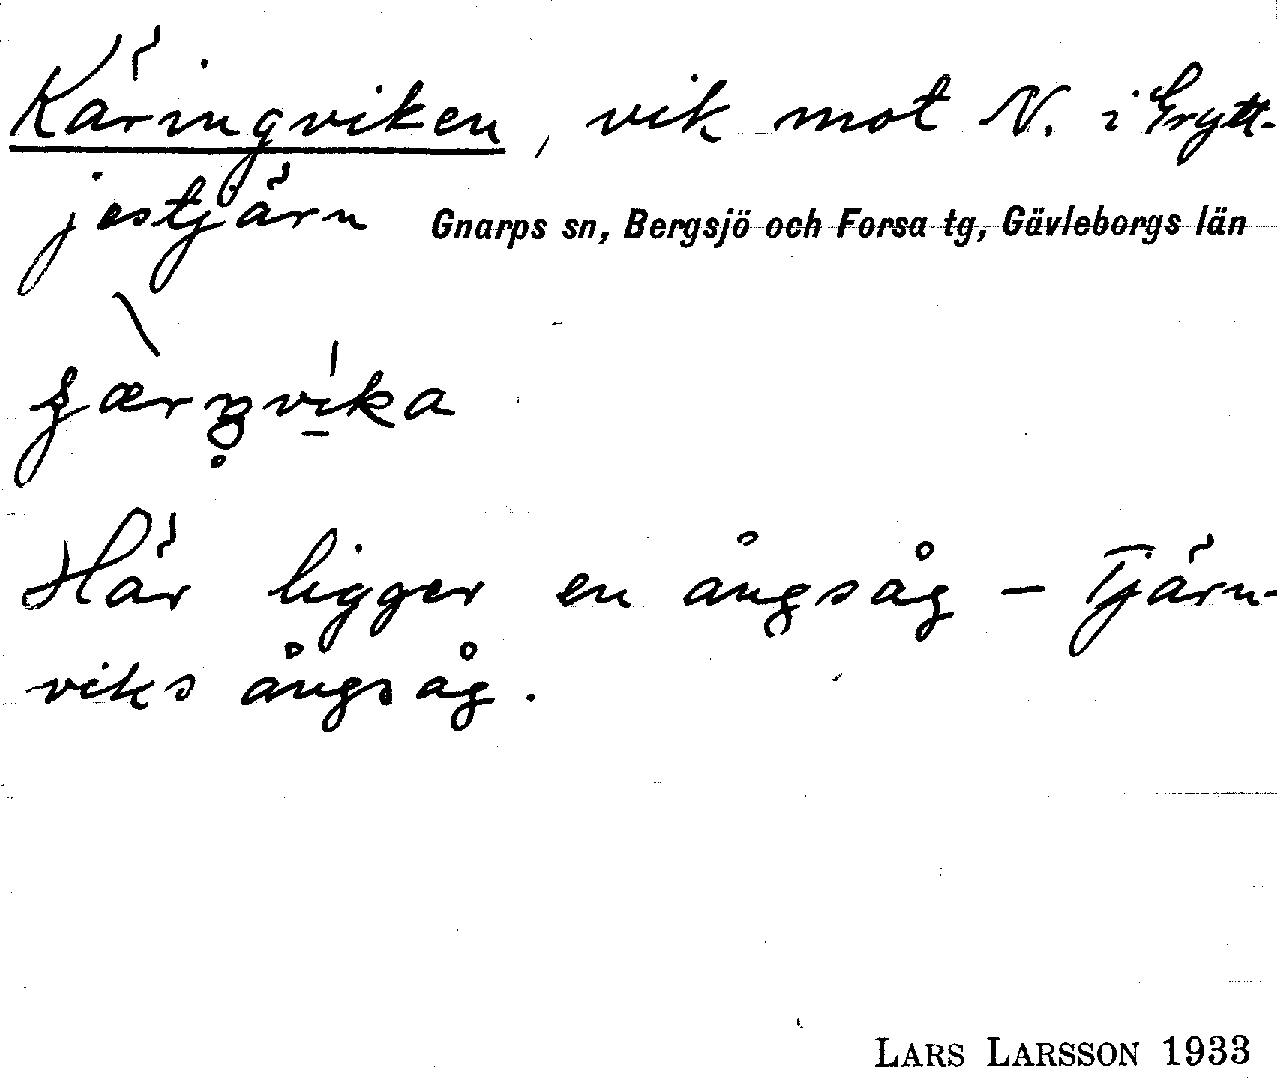 Käringviken, vik mot N. i Grytt-
jestjärn Gnarps sn, Bergsjö och Forsa tg, Gävleborgs län
Här ligger en ångsåg – Tjärn-
viks ångsåg.
LARS LARSSON 1933